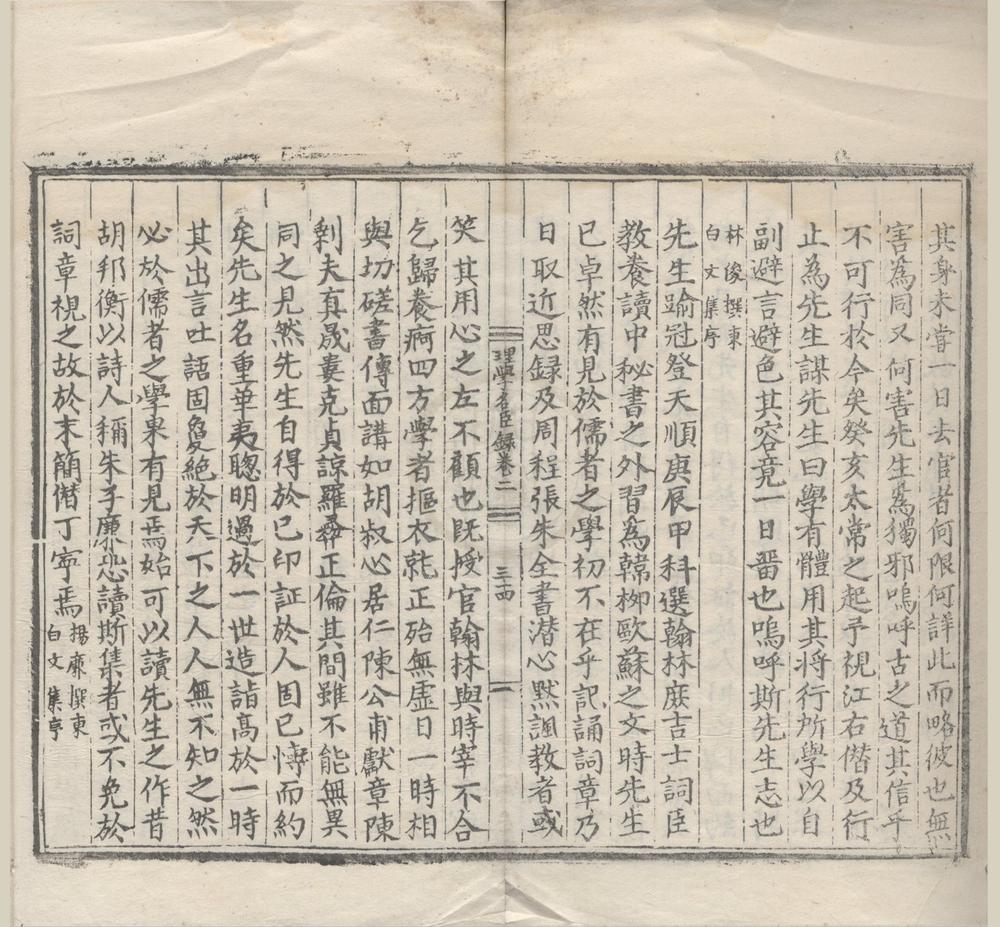 其身未嘗一日去官者何限何詳此而略彼也無
害為同又何害先生為獨邪嗚呼古之道其信乎
不可行於今矣癸亥太常之起予視江右僭及行
止為先生謀先生曰學有體用其将行所學以自
副避言避色其容竟一日畱也嗚呼斯先生志也
林俊撰東
白文集序
先生踰冠登天順庚辰甲科選翰林庶吉士詞臣
教養讀中秘書之外習為韓栁歐蘇之文時先生
已卓然有見於儒者之學初不在乎記誦詞章乃
日取近思録及周程張朱全書潜心默諷教者或
理學名臣録卷二 三十四
笑其用心之左不顧也既授官翰林與時宰不合
乞歸養痾四方學者摳衣就正殆無虚日一時相
與切磋書傳面講如胡叔心居仁陳公甫獻章陳
剩夫真晟婁克貞諒羅彛正倫其間雖不能無異
同之見然先生自得於己印証於人固已慱而約
矣先生名重華夷聰明過於一世造詣高於一時
其出言吐語固敻絶於天下之人人無不知之然
必於儒者之學果有見焉始可以讀先生之作昔
胡邦衡以詩人稱朱子廉恐讀斯集者或不免於
詞章視之故於末簡僭丁寧焉
楊廉撰東
白文集序